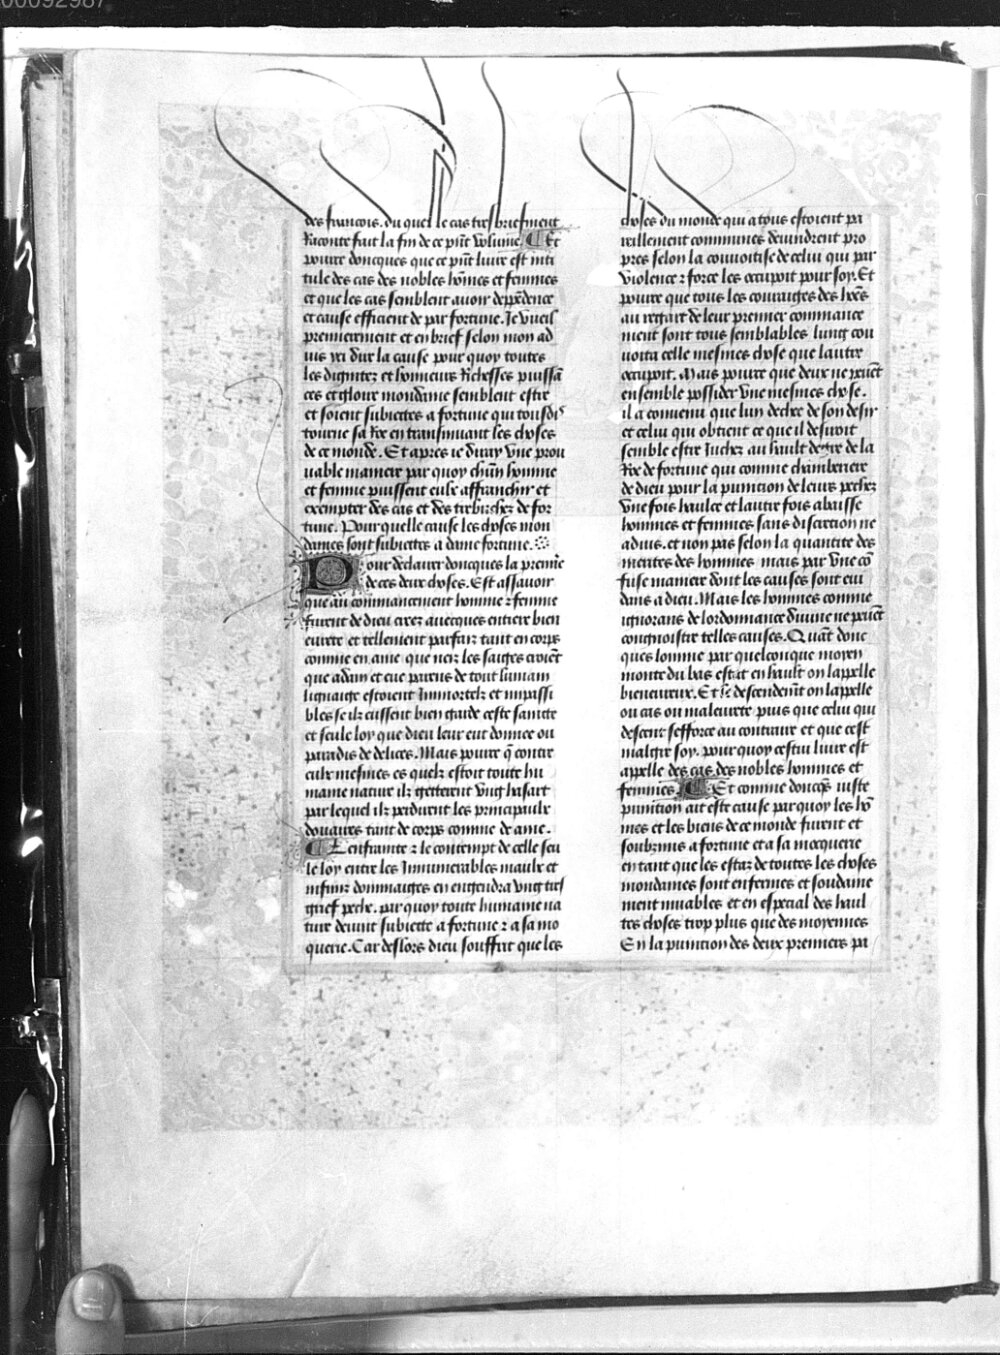 00092987
des francois. du quel le cas tresbriefment
Raconte fait la fin de ce pñt volume. Et
pource doncques que ce pñt livre est inti
tule des cas des nobles hõmes et femmes
et que les cas semblent avoir dependẽce
et cause efficient de par fortune. Je vueil
premierement et en brief selon mon ad
vis yci dire la cause pour quoy toutes
les dignitez et honneurs Richesses puissã
ces et gloire mondaine semblent estre
et soient subiectes a fortune qui tousdis
tourne sa Roe en transmuant les choses
de ce monde. Et apres ie diray une prou
uable maniere par quoy chũn homme
et femme puissent eulx affranchir et
exempter des cas et des trebuchez de for
tune. Pour quelle cause les choses mon
daines sont subiectes a dame fortune.
Pour declairer doncques la premie
de ces deux choses. Est assavoir
que au commancement homme z femme
furent de dieu creez avecques entiere bien
eurete et tellement parfaiz tant en corps
comme en ame que neiz les saiges croiẽt
que adam et eve parens de tout humain
lignaige estoient Immortelz et impassi
bles se ilz eussent bien garde ceste saincte
et seule loy que dieu leur eut donnee ou
paradis de delices. Mais pource q̃ contre
eulx mesmes es quelz estoit toute hu
maine nature ilz getterent ung hasart
par lequel ilz perdirent les principaulx
douaires tant de corps comme de ame.
Lenfrainte z le contempt de celle seu
le loy entre les Innumerables maulx et
infiniz dommaiges en engendra ung tres
grief peche. par quoy toute humaine na
ture devint subiecte a fortune z a sa mo
querie. Car deslors dieu souffrit que les
choses du monde qui a tous estoient pa
reillement communes devindrent pro
pres selon la couvoitise de celui qui par
violence z force les occupoit pour soy. Et
pource que tous les couraiges des hões
au regart de leur premier commance
ment sont tous semblables lung cou
voita celle mesmes chose que lautre
occupoit. Mais pource que deux ne peuẽt
ensemble posider une mesmes chose.
il a convenu que lun dechee de son desir
et celui qui obtient ce que il desiroit
semble estre Juchez au hault degre de la
Roe de fortune qui comme chamberiere
de dieu pour la punicion de leurs pechez
une fois haulce et lautre fois abaisse
hommes et femmes sans discrecion ne
advis. et non pas selon la quantite des
merites des hommes mais par une cõ
fuse maniere dont les causes sont eui
dans a dieu. Mais les hommes comme
ignorans de lordonnance divine ne peuẽt
congnoistre telles causes. Quãt donc
ques lomme par quelconque moyen
monte du bas estat en hault on lappelle
bieneureux. Et se descendent on lapelle
ou cas ou maleurete puis que celui qui
descent sefforce au contraire et que cest
malgre soy. pour quoy cestui livre est
appelle des cas des nobles hommes et
femmes. Et comme doncq̃s iuste
punition ait este cause par quoy les hõ
mes et les biens de ce monde furent et
soubzmis a fortune et a sa mocquerie
en tant que les estaz de toutes les choses
mondaines sont enfermes et soudaine
ment muables et en especial des haul
tes choses trop plus que des moyennes
En la punicion des deux premiers pa